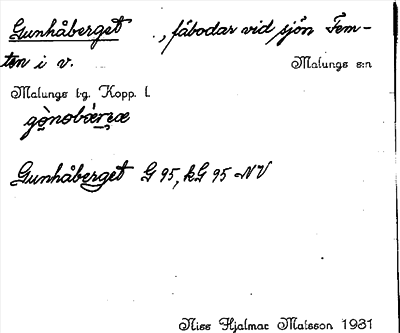 Gunhåberget ., fäbodar vid sjön Fem-
ten i v. Malungs s:n
Malungs tg. Kopp. l.
Gunhåberget G 95, kG 95 NV
Nils Hjalmar Matsson 1931